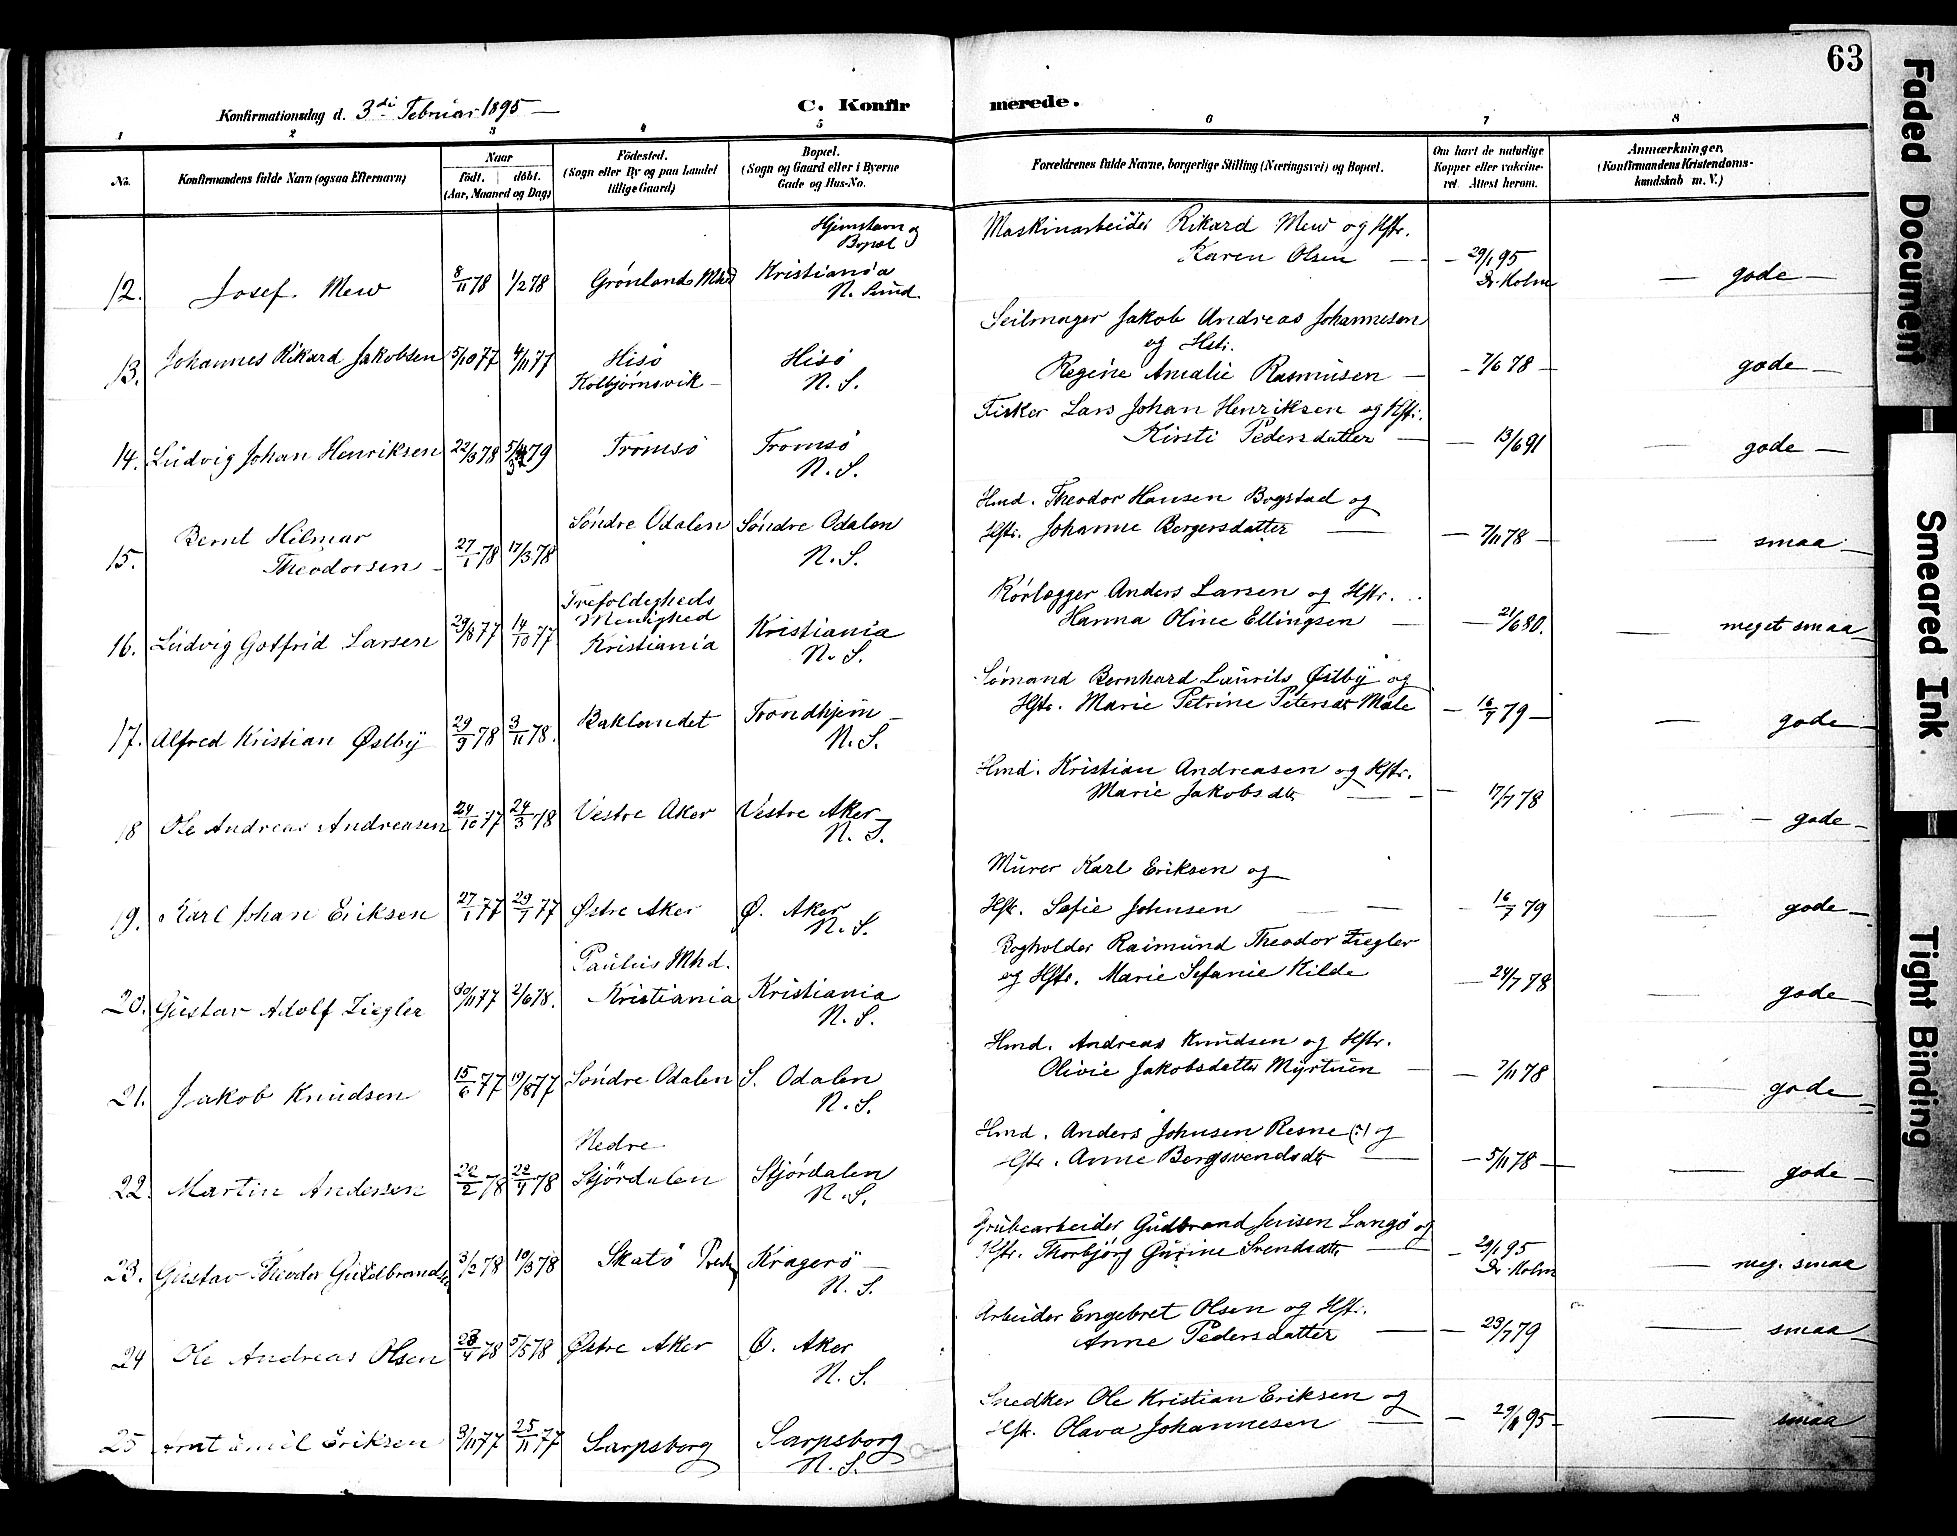 63
Konfirmationsdag d. 3di Februar 1895 —
C. Konfir
merede.
1 2 3 4 5 6 7 8
No.
Konfirmandens fulde Navn (ogsaa Efternavn)
Naar
födt. döbt.
(Aar, Maaned og Dag)
Födested.
(Sogn eller By og paa Landet
tillige Gaard)
Bopæl.
(Sogn og Gaard eller i Byerne
Gade og Hus-No.
Forældrenes fulde Navne, borgerlige Stilling (Næringsvei) og Bopæl.
Om havt de naturlige
Kopper eller vakcine-
ret. Attest herom.
Anmærkninger.
(Konfirmandens Kristendoms-
kundskab m. V.)
Hjemstavn og
Bopæl
Maskinarbeider Rikard Mew og Hstr.
Karen Olsen —
12. Josef. Mew 8/11 78 1/2 78 Grønlands Mhd Kristiania
N. Sund.
— 29/1 95
Dr. Holm
— gode —
Seilmager Jakob Andreas Johannesen
og Hstr.
13. Johannes Rikard Jakobsen 5/10 77 4/11 77 Hisö
Kolbjörnsvik —
Hisö
N. S.
Regine Amalie Rasmusen — — 7/6 78 — gode —
Fisker Lars Johan Henriksen og Hstr.
Kirsti Pedersdatter —
14. Ludvig Johan Henriksen 22/3 78 Tromsö Tromsö
N. S.
— 13/6 91 — gode —
Hmd. Theodor Hansen Bogstad og
Hstr. Johanne Bergersdatter —
15. Bernt Hilmar
Theodorsen — 27/1 78 17/3 78 Söndre Odalen Söndre Odalen
N. S.
— 7/11 78 — smaa —
Rörlægger Anders Larsen og Hstr.
Hanna Oline Ellingsen —
16. Ludvig Gotfrid Larsen 29/8 77 14/10 77 Trefoldigheds
Menighed
Kristiania
Kristiania
N. S.
— 21/6 80. — meget smaa —
Sömand Bernhard Laurits Østby og
Hstr. Marie Petrine Petersdt Male
17. Alfred Kristian Østby 29/9 78 3/11 78. Baklandet Trondhjem —
N. S.
— 16/7 79 — gode —
Hmd. Kristian Andreasen og Hstr.
Marie Jakobsdtr —
18 Ole Andreas Andreasen 24/10 77 24/3 78 Vestre Aker Vestre Aker —
N. S.
— 17/7 78 — gode —
Murer Karl Eriksen og —
Hstr. Sofie Johnsen —
19. Karl Johan Eriksen 27/1 77 29/7 77 Østre Aker Ø. Aker
N. S.
— 16/7 79 — gode —
Bogholder Raimund Theodor Ziegler
og Hstr. Marie Stefanie Kilde
20. Gustav Adolf Ziegler 30/11 77 2/6 78. Paulus Mhd.
Kristiania
Kristiania
N. S.
— 24/7 78 — gode —
Hmd. Andreas Knudsen og Hstr.
Olivie Jakobsdatter Myrtuen —
21. Jakob Knudsen 15/6 77 19/8 77 Söndre Odalen S. Odalen
N. S.
— 7/11 78 — gode —
Hmd. Anders Johnsen Resne (?) og
Hstr. Anne Bergsvendsdt —
22. Martin Andersen 22/2 78 22/4 78 Nedre
Stjördalen
Stjördalen
N. S.
— 5/11 78 — gode —
Grubearbeider Gudbrand Jensen Langö og
Hstr. Thorbjörg Gurine Svendsdtr —
23. Gustav Theodor Guldbrandsen 3/2 78 10/3 78 Skatö Kragerö —
N. S.
— 29/1 95
Dr. Holm
— meg. smaa
Arbeider Engebret Olsen og Hstr.
Anne Pedersdatter —
24 Ole Andreas Olsen 28/4 78 5/5 78 Østre Aker Ø. Aker
N. S.
— 23/7 79 — smaa —
Snedker Ole Kristian Eriksen og
Hstr. Olava Johannesen —
25 Emil Eriksen 3/11 77 25/11 77 Sarpsborg Sarpsborg
N. S.
— 29/1 95 — smaa —
Faded Document
Smeared Ink
Tight Binding